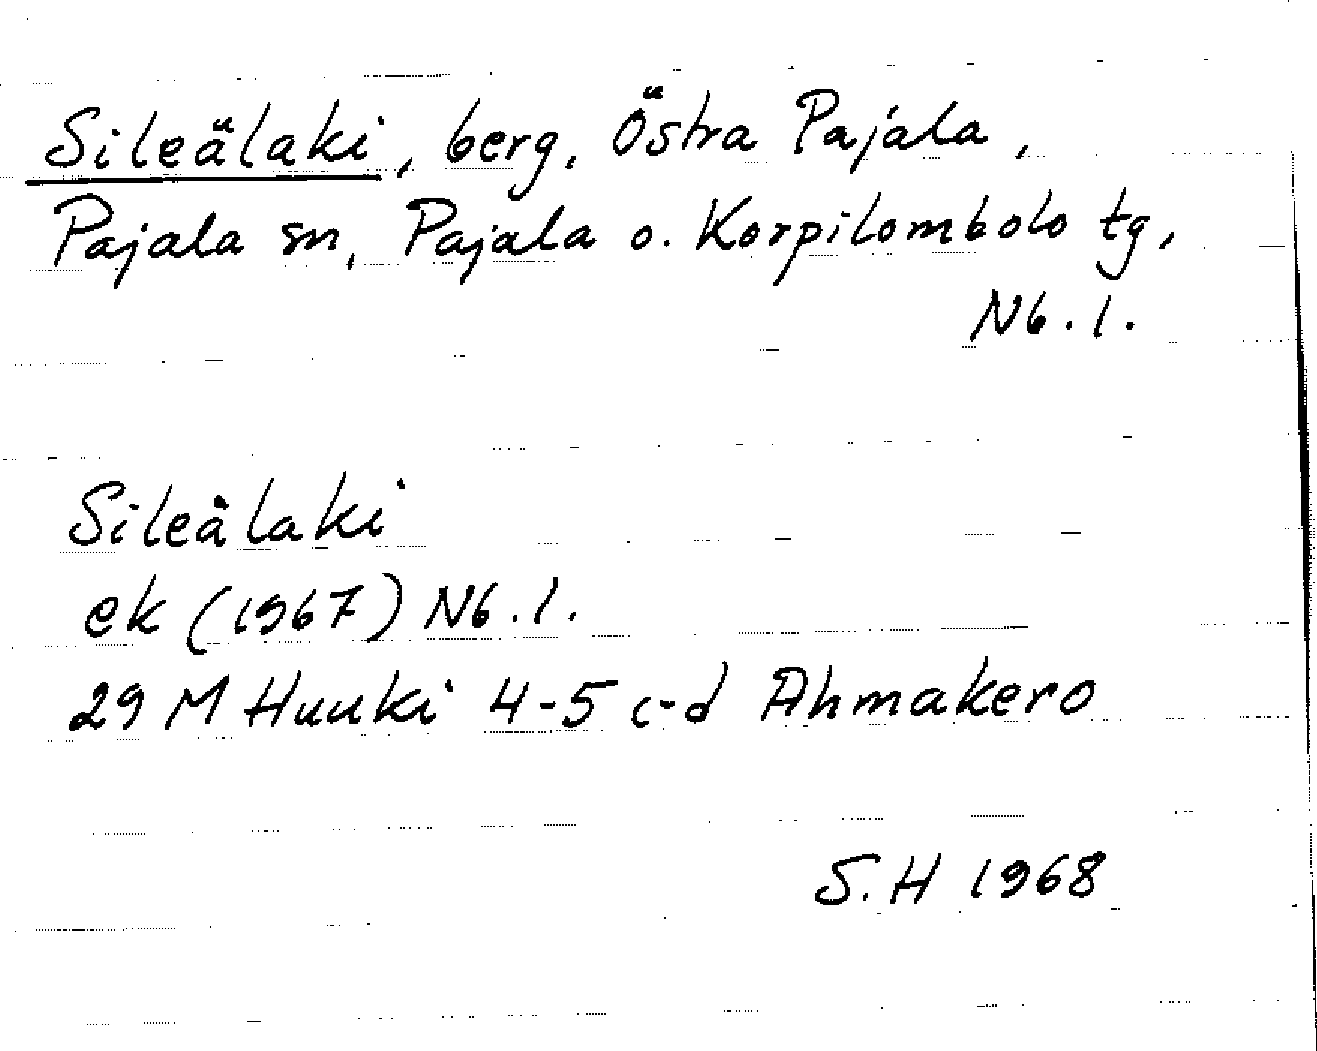 Sileälaki, berg, Östra Pajala,
Pajala sn, Pajala o. Korpilombolo tg,
Nb. l.
Sileälaki
ek (1967) Nb. l.
29 M Huuki 4-5 c-d Ahmakero
S. H 1968